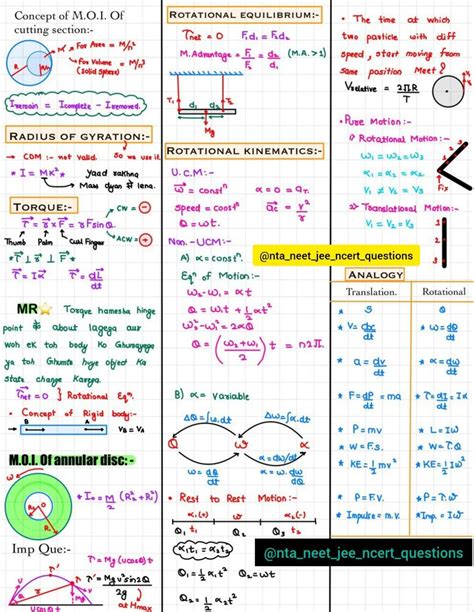 Concept of M.O.I. Of
cutting section:-
For Area = M/n²
For Volume = M/n³
(Solid sphere)
Iremain = Icomplete - Iremoved.
RADIUS OF GYRATION:-
→ COM :- not valid. So we use it
* I = MK² * Yaad rakhna
Mass dyan se lena.
TORQUE:-
τ = r x F = rFsinθ
CW = ⊖
ACW = ⊕
Thumb Palm Curl Finger
* τ ⊥ r ⊥ F *
τ = Iα
τ = dL/dt
MR⭐ Torque hamesha hinge
point ke about lagega aur
woh ek toh body ko Ghumayega
ya toh Ghumte huye object ka
state change Karega.
τnet = 0 } Rotational Eqⁿ.
• Concept of Rigid body:-
B A VB = VA
M.O.I. Of annular disc: -
* I₀ = M/2 (R₁² + R₂²)
Imp Que:-
τ = Mg (ucosθ) t
τ' = Mgv²sin2θ/2g
at Hmax
ROTATIONAL EQUILIBRIUM:-
τnet = 0 F₁d₁ = F₂d₂
M.Advantage = F₁/F₂ = d₂/d₁ (M.A. > 1)
T₁ d₁ d₂ T₂
Mg
ROTATIONAL KINEMATICS:-
U.C.M:-
ω = constⁿ α = 0 = aτ.
speed = constⁿ ac = v²/r
θ = ωt.
Non-UCM:-
A) α = constⁿ.
Eqⁿ of Motion:-
ω₂-ω₁ = αt
θ = ω₁t + 1/2 αt²
ω₂²-ω₁² = 2αθ
θ = (ω₂+ω₁/2) t = n2π.
B) α = Variable
Δθ = ∫ω.dt Δω = ∫α.dt
θ ω α
ω = dθ/dt α = dω/dt
• Rest to Rest Motion:-
α₁(+) α₂(-)
θ₁ t₁ θ₂ θ₃ t₂
α₁t₁ = α₂t₂
θ₁ = 1/2 α₁t² θ₂ = ωt
θ₃ = 1/2 α₂t²
• The time at which
two particle with diff
speed, start moving from
same position Meet?
Vrelative = 2πR/T
• Pure Motion:-
1) Rotational Motion:-
ω₁ = ω₂ = ω₃
α₁ = α₂ = α₃
V₁ ≠ V₂ ≠ V₃
2) Translational Motion:-
V₁ = V₂ = V₃
@nta_neet_jee_ncert_questions
ANALOGY
Translation. Rotational
* S θ
* V = dx/dt * ω = dθ/dt
* a = dv/dt * α = dω/dt
* F = dP/dt = ma * τ = dL/dt = Iα
* P = mv * L = Iω
* W = F.S. * W = τ.θ
* KE = 1/2 mv² * KE = 1/2 Iω²
* P = F.V. * P = τ.ω
* Impulse = m.v. * Imp. = Iω
@nta_neet_jee_ncert_questions